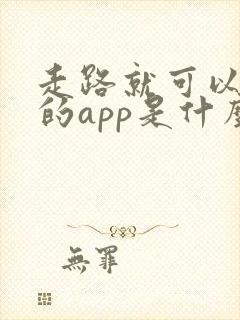 走路就可以
的app是什麼
無罪